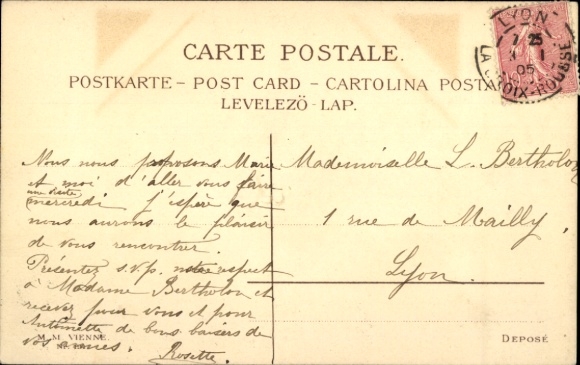 CARTE POSTALE.
POSTKARTE – POST CARD – CARTOLINA POSTA
LEVELEZÖ-LAP.
LYON
7 25
1 1
05
LA CROIX-ROUSSE
Nous nous proposons Marie
et moi d'aller vous faire
une visite
mercredi j'espère que
nous aurons le plaisir
de vous rencontrer.
Présentez s.v.p. notre respect
à Madame Bertholon et
recevez pour vous et pour
Antoinette de bons baisers de
vos amies.
Rosette.
Mademoiselle L. Bertholon
1 rue de Mailly,
Lyon.
M. M. VIENNE
DEPOSÉ